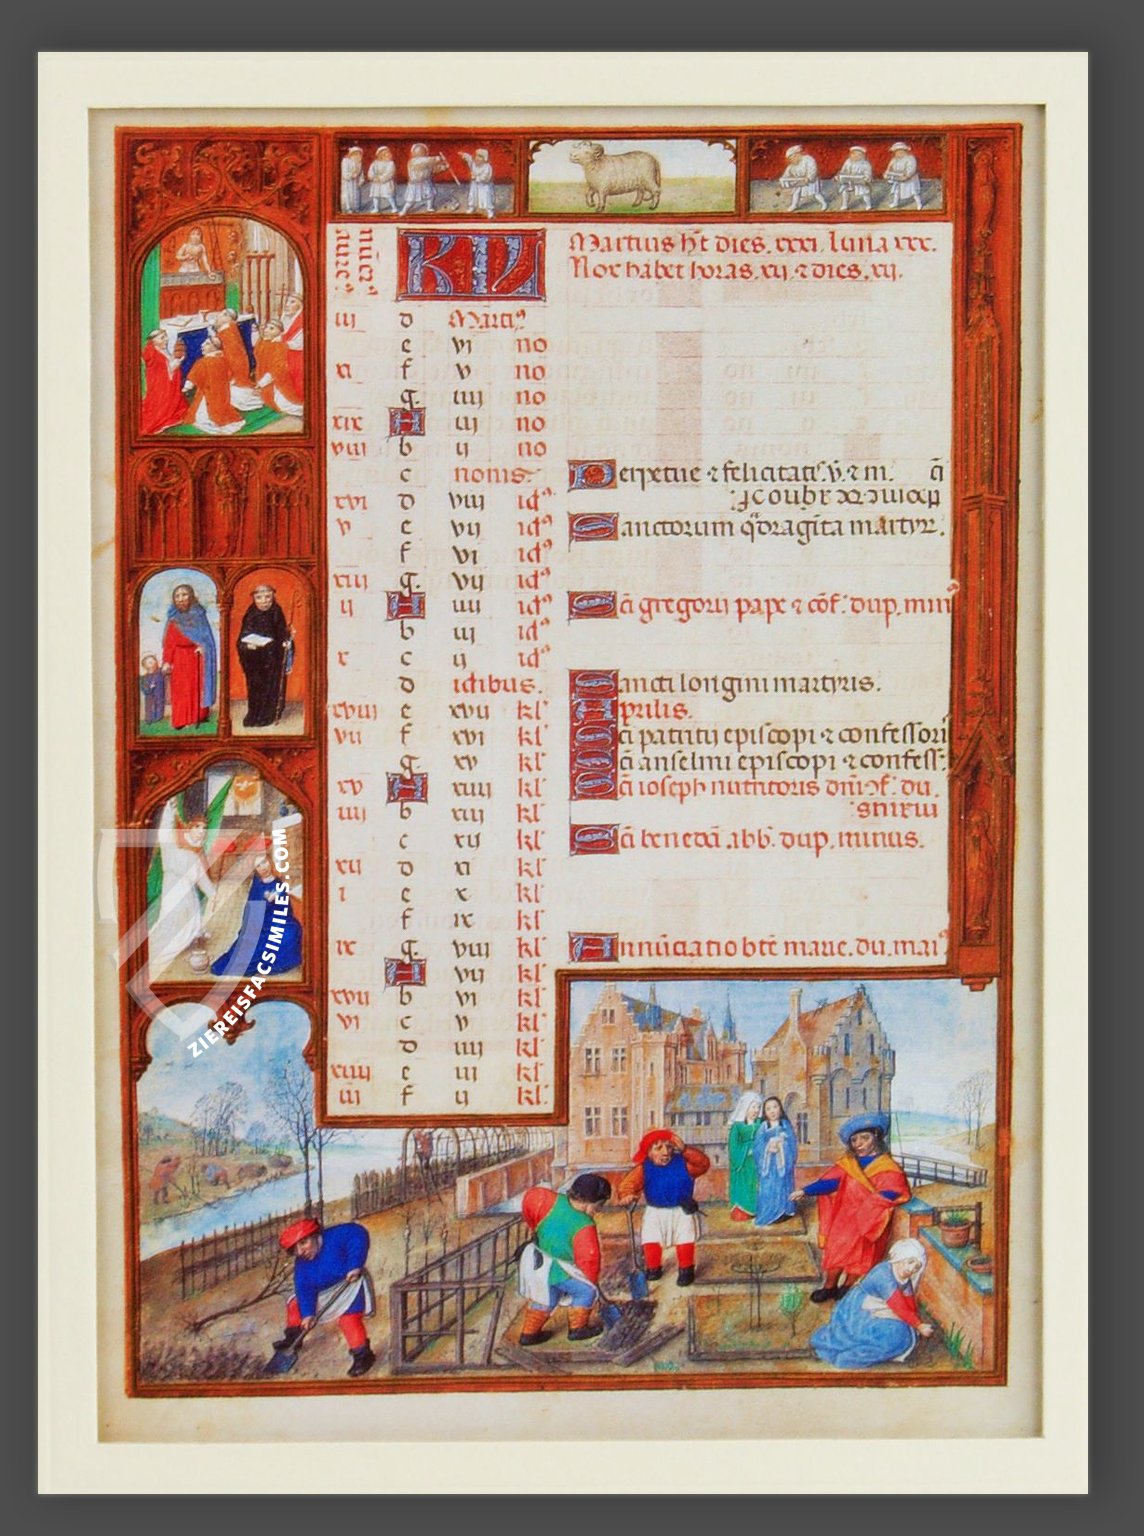 KL Martius h̄t dies. xxxi. luna xxx.
Nox habet horas. xij. ⁊ dies. xij.
iij d Martiꝰ
e vj no
xi f v no
g. iiij no
xix A iij no
viij b ij no
c nonis. Perpetue ⁊ felicitatꝭ. v̄. ⁊ m.
xvi d viij idꝰ
v e vij idꝰ Sanctorum q̄dragīta martyr.
f vj idꝰ
xiij g. vij idꝰ
ij A iiij idꝰ Sc̄i gregorij pape ⁊ cōf. dup. min
b iij idꝰ
x c ij idꝰ
d idibus. Sancti longini martyris.
xviij e xvij kl Aprilis.
vij f xvi kl Sc̄i patritij episcopi ⁊ confessori
g. xv kl Sc̄i anselmi episcopi ⁊ confess.
xv A xiiij kl Sc̄i ioseph nutritoris dn̄i
iiij b xiij kl
c xij kl Sc̄i benedc̄i. abb. dup. minus.
xij d xi kl
i e x kl
f ix kl
ix g. viij kl Annūciatio bt̄e marie. du. maiꝰ
A vij kl
xvij b vi kl
vi c v kl
d iiij kl
xiiij e iij kl
iij f ij kl
ZIEREISFACSIMILES.COM